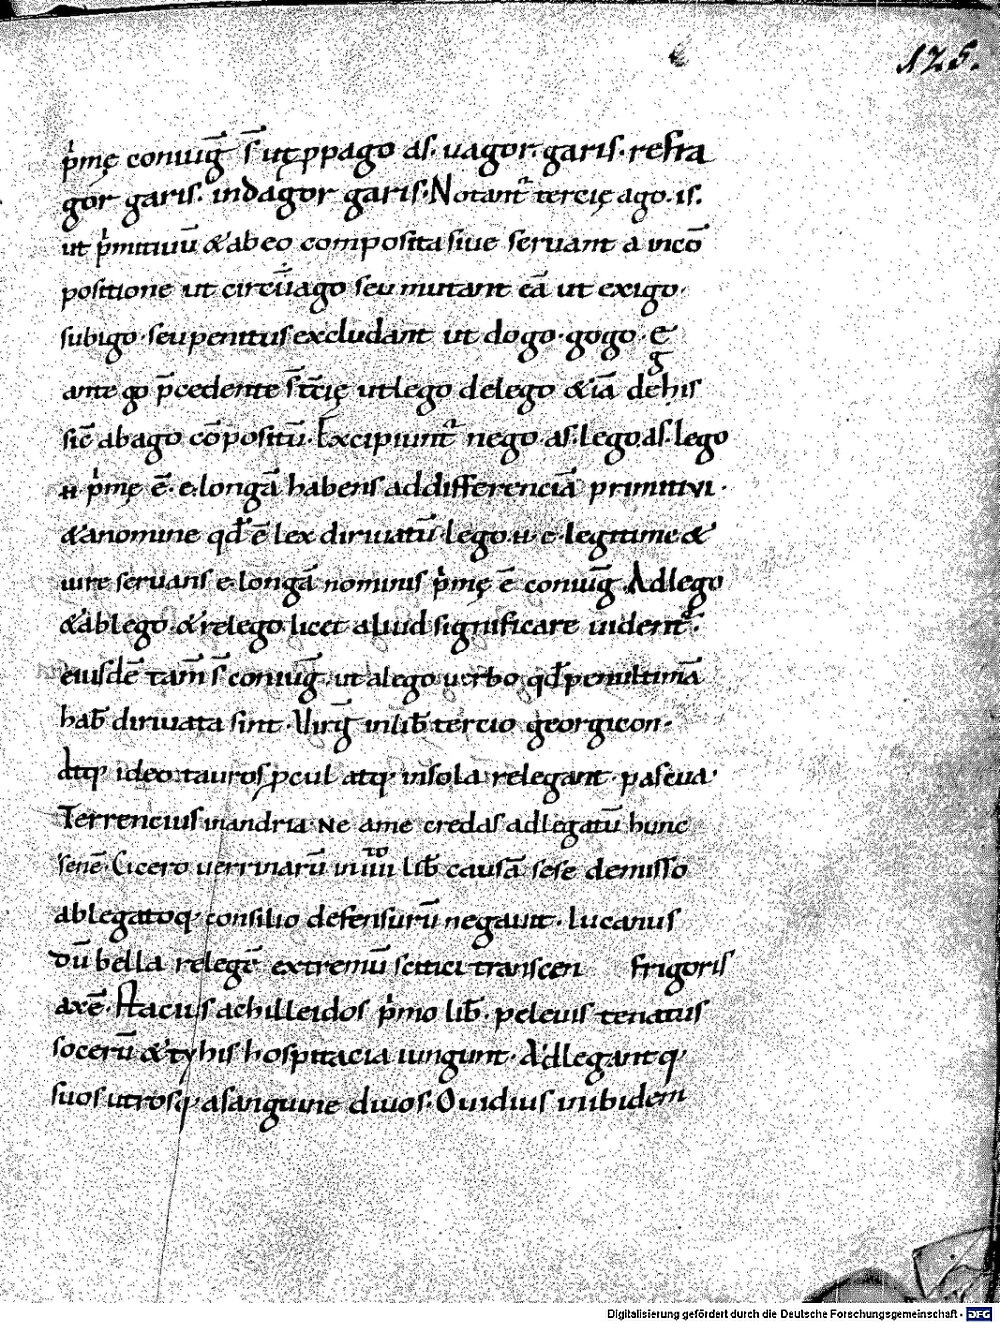 125.
p̍mę coniug̅ s̅ ut ꝓpago as. uagor. garis. refra
gor garis. indagor garis. Notant᷑ tercię ago. is.
ut p̍mitiuū & ab eo composita siue seruant a in cō
positione ut circūago seu mutant eā ut exigo.
subigo. seu penitus excludant ut dogo. gogo. e
g
ante go p̅cedente s̅ t̅cię ut lego delego & iā de his
sic̅ ab ago cōpositū. Excipiunt᷑ nego. as. lego. as. lego
p̍mę ē. e. longā habens ad differenciā primitivi.
& a nomine qd̅ ē lex diriuatū. lego. e. legitime &
iure seruans e. longā nominis p̍mę ē coniug̅. Adlego
& ablego. & relego licet aliud significare uident᷑.
eiusdē tam̅ s̅ coniug̅. ut a lego uerbo qd̅ penultimā
hab̅ diriuata sint. Uirg̅ in lib̅ tercio georgicon.
Atq; ideo tauros ꝓcul atq; in sola relegant pascua.
Terrencius in andria. Ne ame credas adlegatū hunc
senē. Cicero uerrinarū in iiii to lib̅ causā sese demisso
ablegatoq; consilio defensurū negauit. lucanus
Dū bella relegē extremū scitici transcen frigoris
axē. Stacius achilleidos p̍mo lib̅. peleius tenatus
socerū & tyhis hospitacia iungunt. Adlegantq;
suos utrosq; a sanguine diuos. Ouidius in ibidem
Digitalisierung gefördert durch die Deutsche Forschungsgemeinschaft - DFG